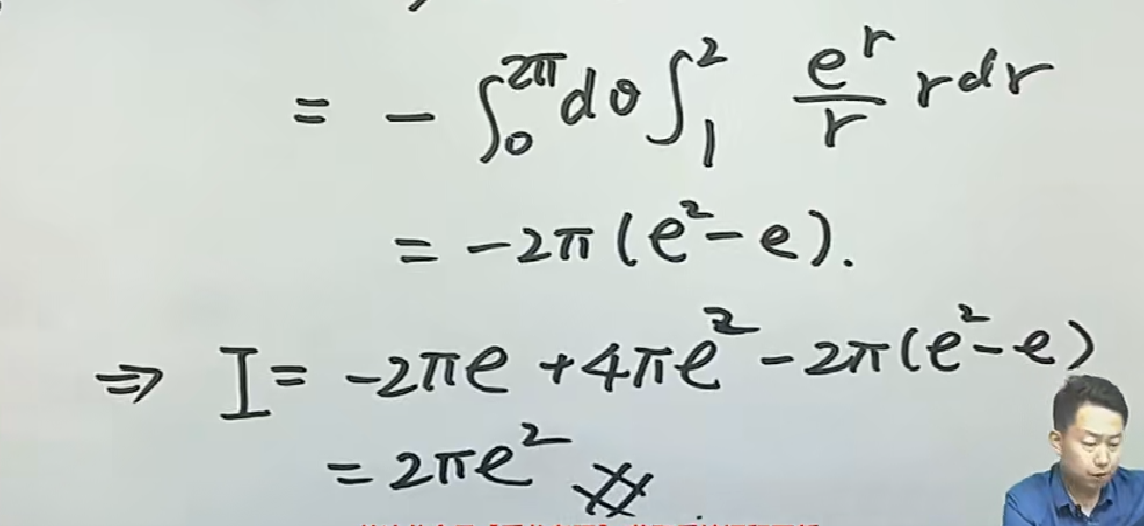 = - ∫₀^{2π} dθ ∫₁² e^r/r r dr
= -2π(e²-e).
⇒ I = -2πe + 4πe² - 2π(e²-e)
= 2πe² #